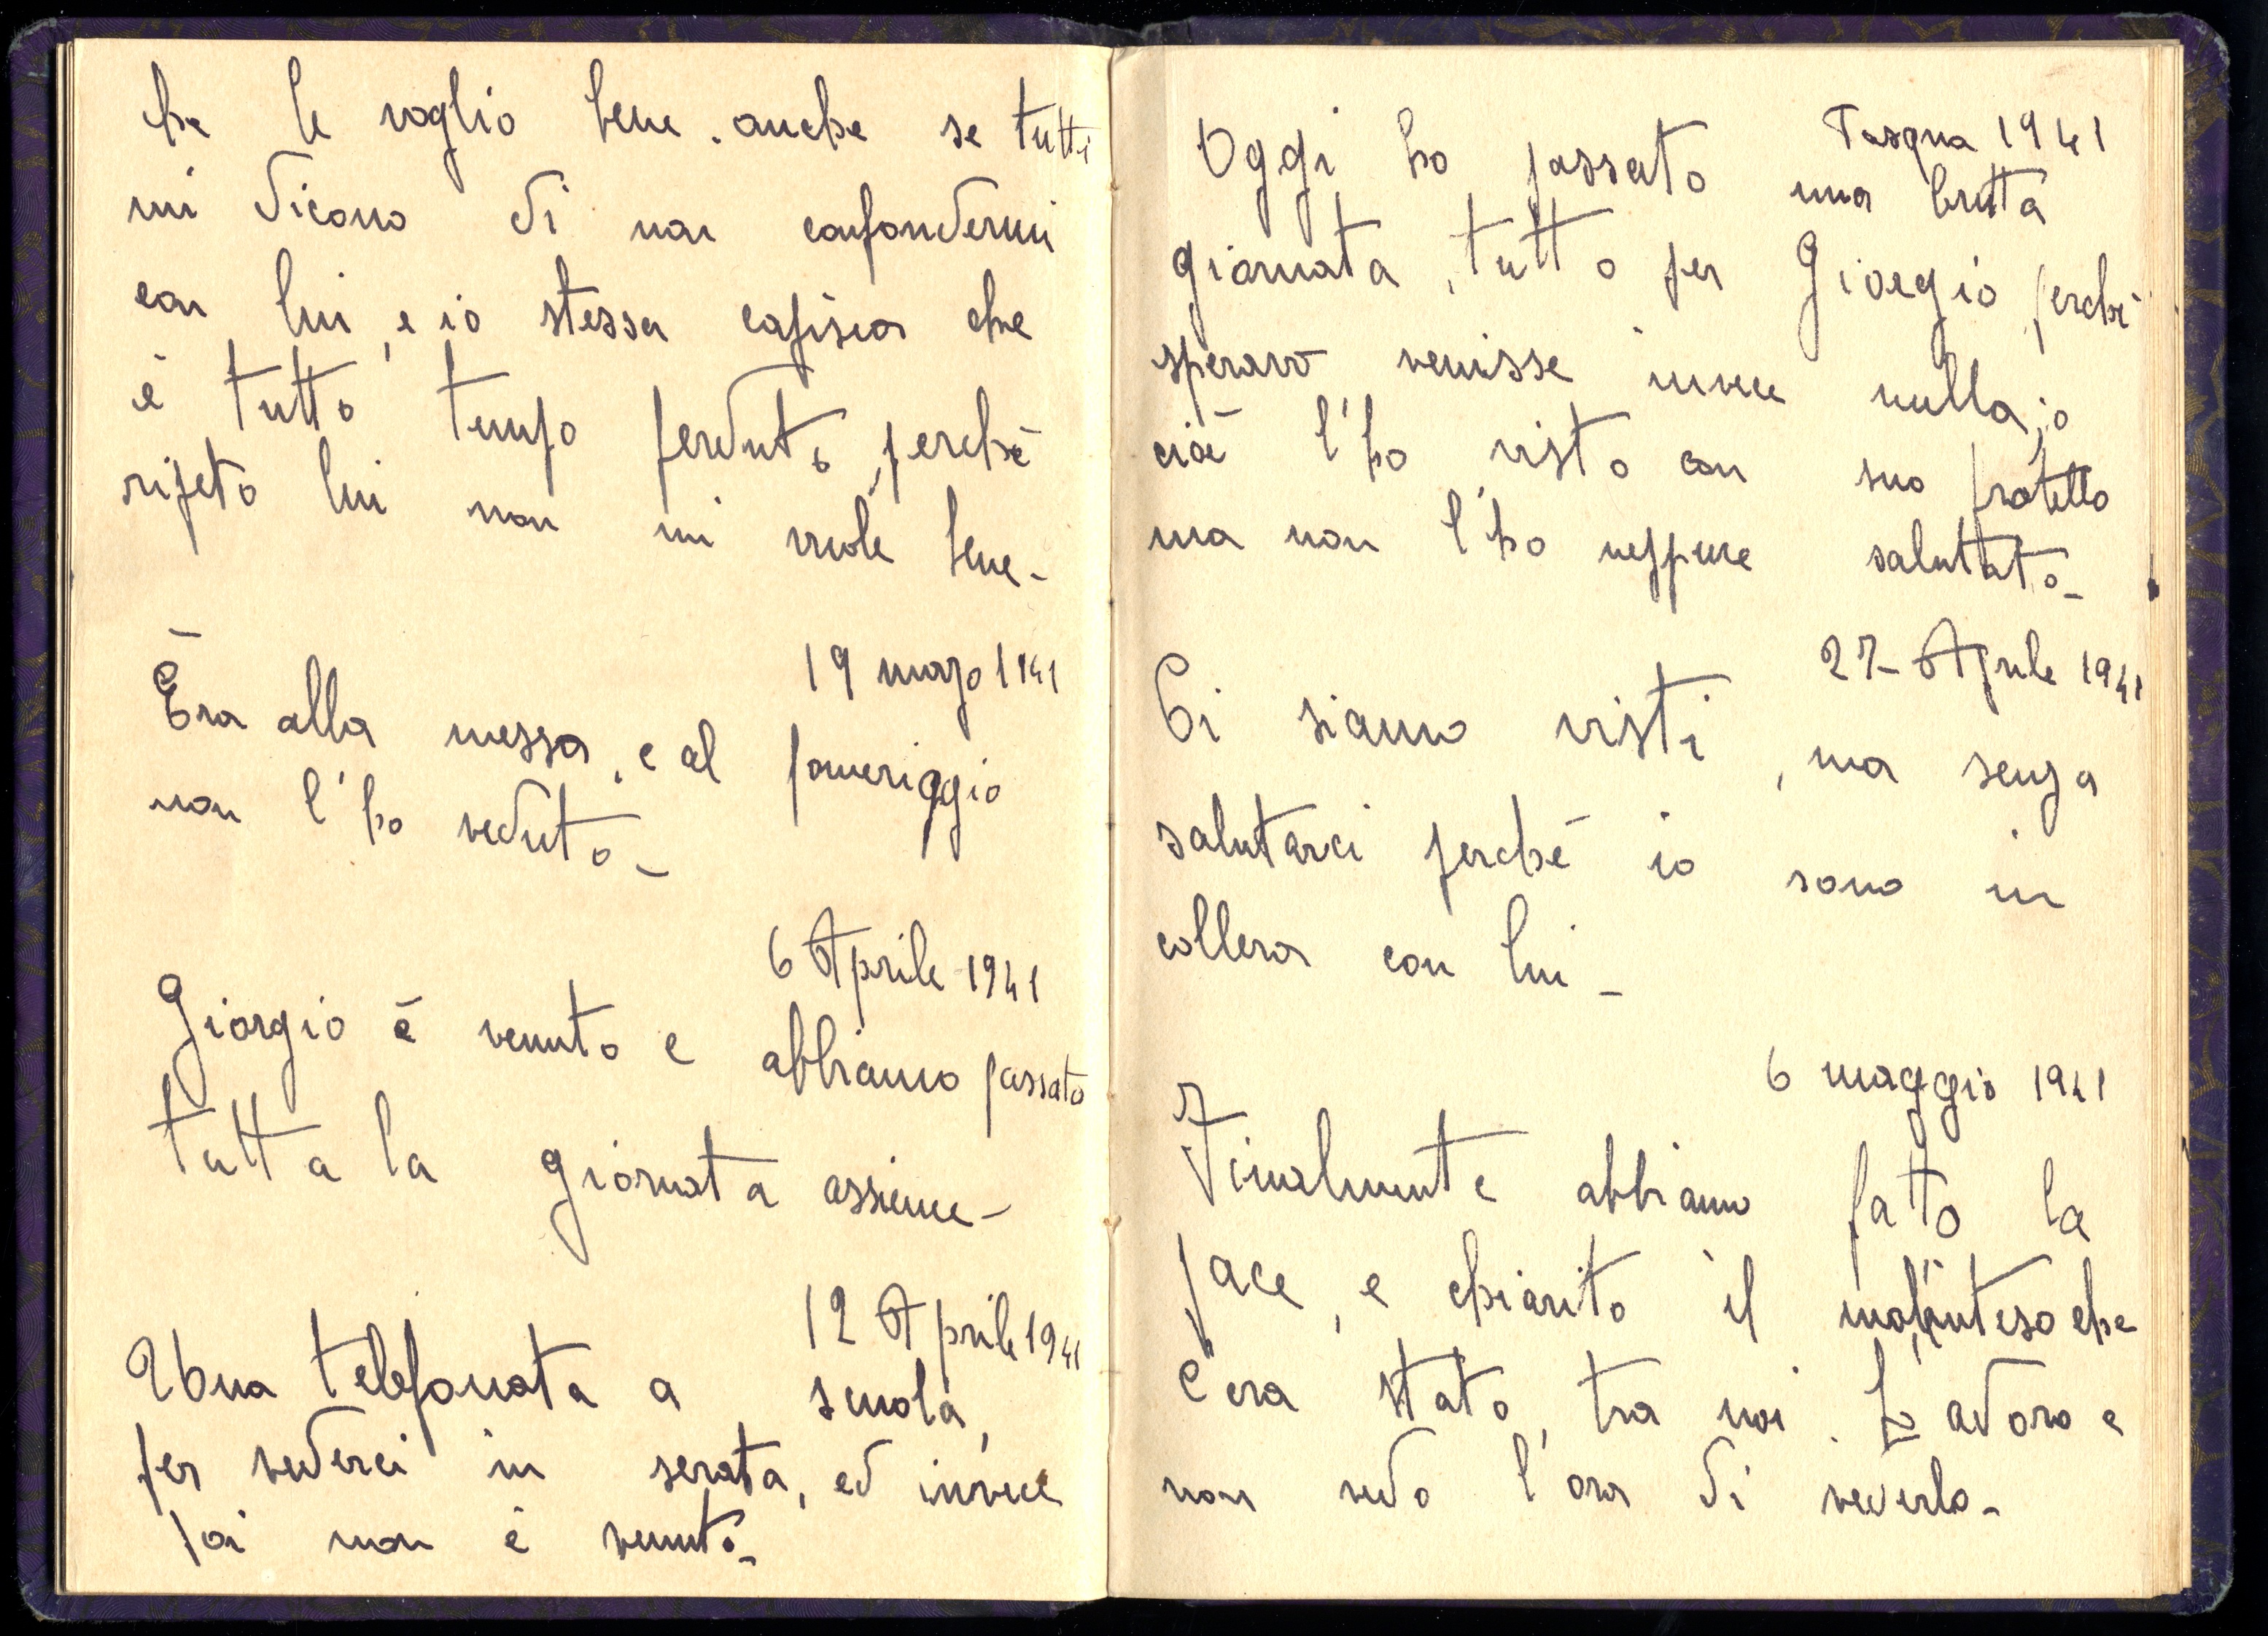 che le voglio bene. anche se tutti
mi dicono di non confondermi
con lui, e io stessa capisco che
è tutto tempo perduto, perchè
ripeto lui non mi vuole bene-
19 marzo 1941
Era alla messa, e al pomeriggio
non l'ho veduto-
6 Aprile 1941
Giorgio è venuto e abbiamo passato
tutta la giornata assieme-
12 Aprile 1941
Una telefonata a scuola,
per vederci in serata, ed invece
poi non è venuto-
Pasqua 1941
Oggi ho passato una brutta
giornata, tutto per Giorgio, perchè
speravo venisse invece nulla; o
cioè l'ho visto con suo fratello
ma non l'ho neppure salutato-
27- Aprile 1941
Ci siamo visti, ma senza
salutarci perchè io sono in
collera con lui-
6 maggio 1941
Finalmente abbiamo fatto la
pace, e chiarito il malinteso che
c'era stato, tra noi. Lo adoro e
non vedo l'ora di vederlo-